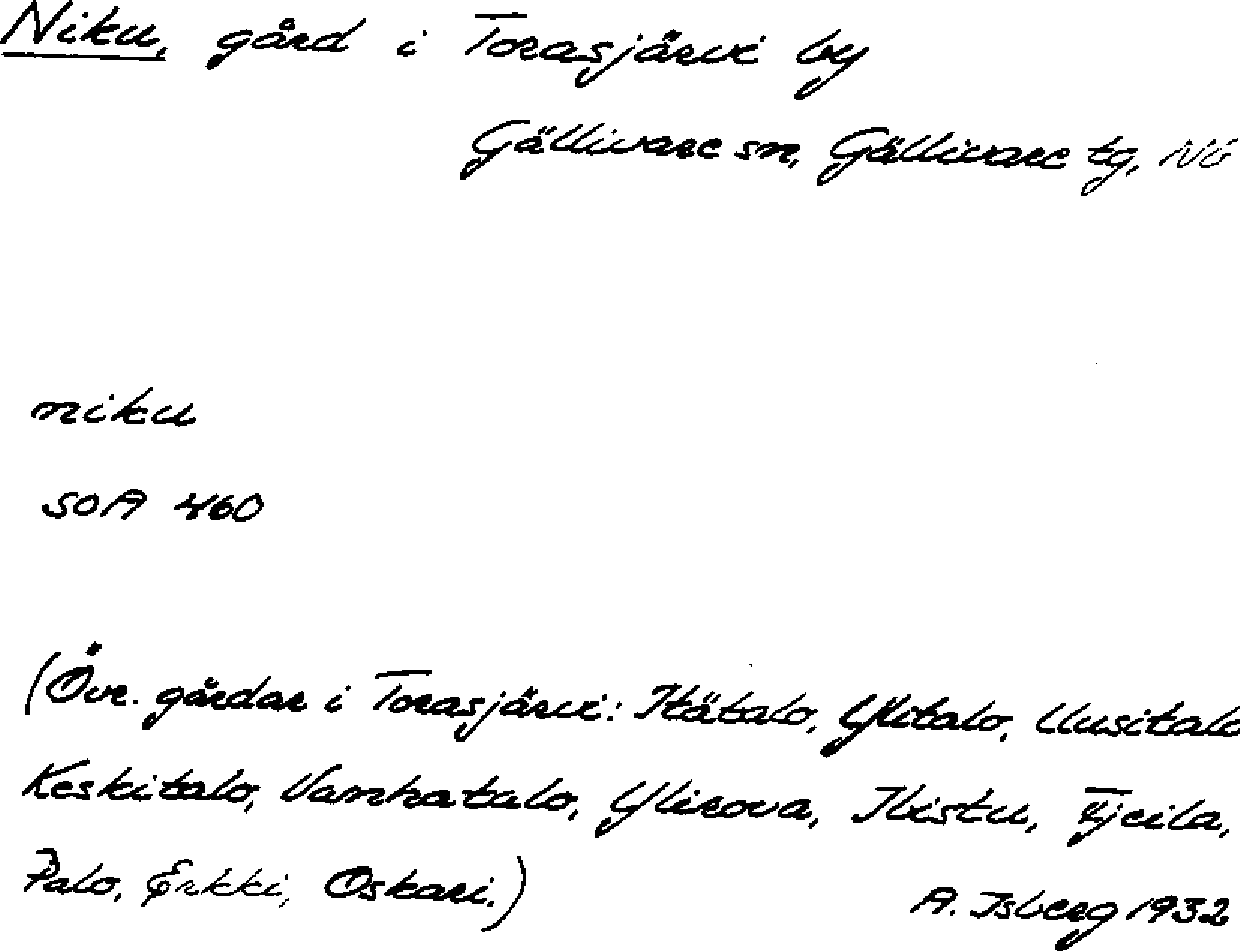 Niku, gård i Torasjärvi by
Gällivare sn, Gällivare tg, Nb
niku
SOA 460
(Övr. gårdar i Torasjärvi: Itätalo, Ylitalo, Uusitalo
Keskitalo, Vanhatalo, Ylirova, Ilistu, Fjeila,
Palo, Erkki, Oskari.)
A. Isberg 1932